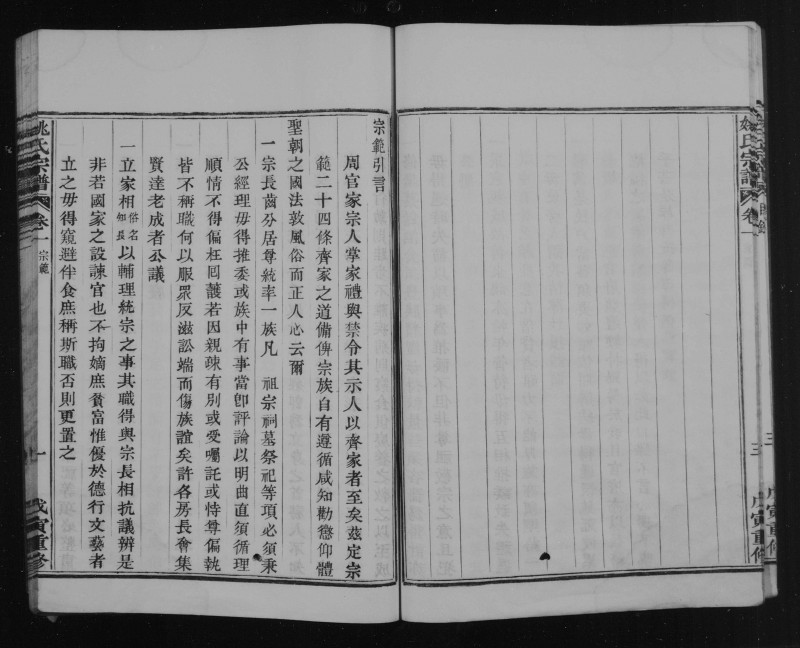 姚氏宗譜
卷
目錄
三
戊寅重修
宗範引言
周官家宗人掌家禮與禁令其示人以齊家者至矣茲定宗
範二十四條齊家之道備俾宗族自有遵循咸知勸懲仰體
聖朝之國法敦風俗而正人心云爾
一宗長齒分居尊統率一族凡 祖宗祠墓祭祀等項必須秉
公經理毋得推委或族中有事當卽評論以明曲直須循理
順情不得偏枉囘護若因親疎有別或受囑託或恃尊偏執
皆不稱職何以服眾反滋訟端而傷族誼矣許各房長會集
賢達老成者公議
一立家相俗名知長以輔理統宗之事其職得與宗長相抗議辨是
非若國家之設諫官也不拘嫡庶貧富惟優於德行文藝者
立之毋得窺避伴食庶稱斯職否則更置之
姚氏宗譜
卷一
宗範
一
戊寅重修